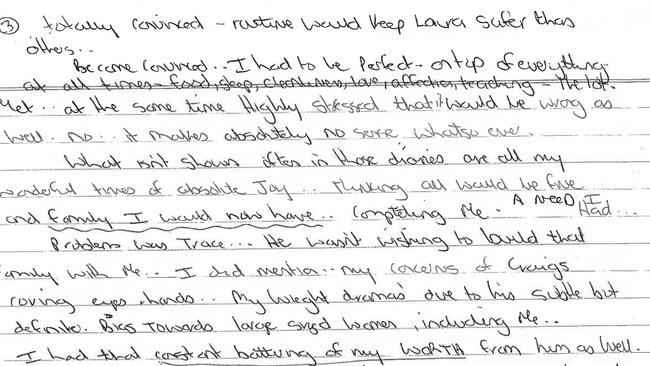 ③ totally convinced - routine would keep Laura safer than
others..
Become convinced.. I had to be perfect - on top of everything
at all times - food, sleep, cleanliness, love, affection, teaching - the lot.
Yet.. at the same time Highly stressed that it would be wrong as
well. no.. it makes absolutely no sense whatso ever.
What isn't shown often in those diaries are all my
wonderful times of absolute Joy.. thinking all would be fine
and family I would now have.. Completing Me. A NEED I Had...
Problem was Trace... He wasn't wishing to build that
family with Me.. I did mention.. my concerns of Craigs
roving eyes + hands.. My Wieght dramas' due to his subtle but
definite. Bias towards large sized women, including Me..
I had that constant battling of my WORTH from him as well.